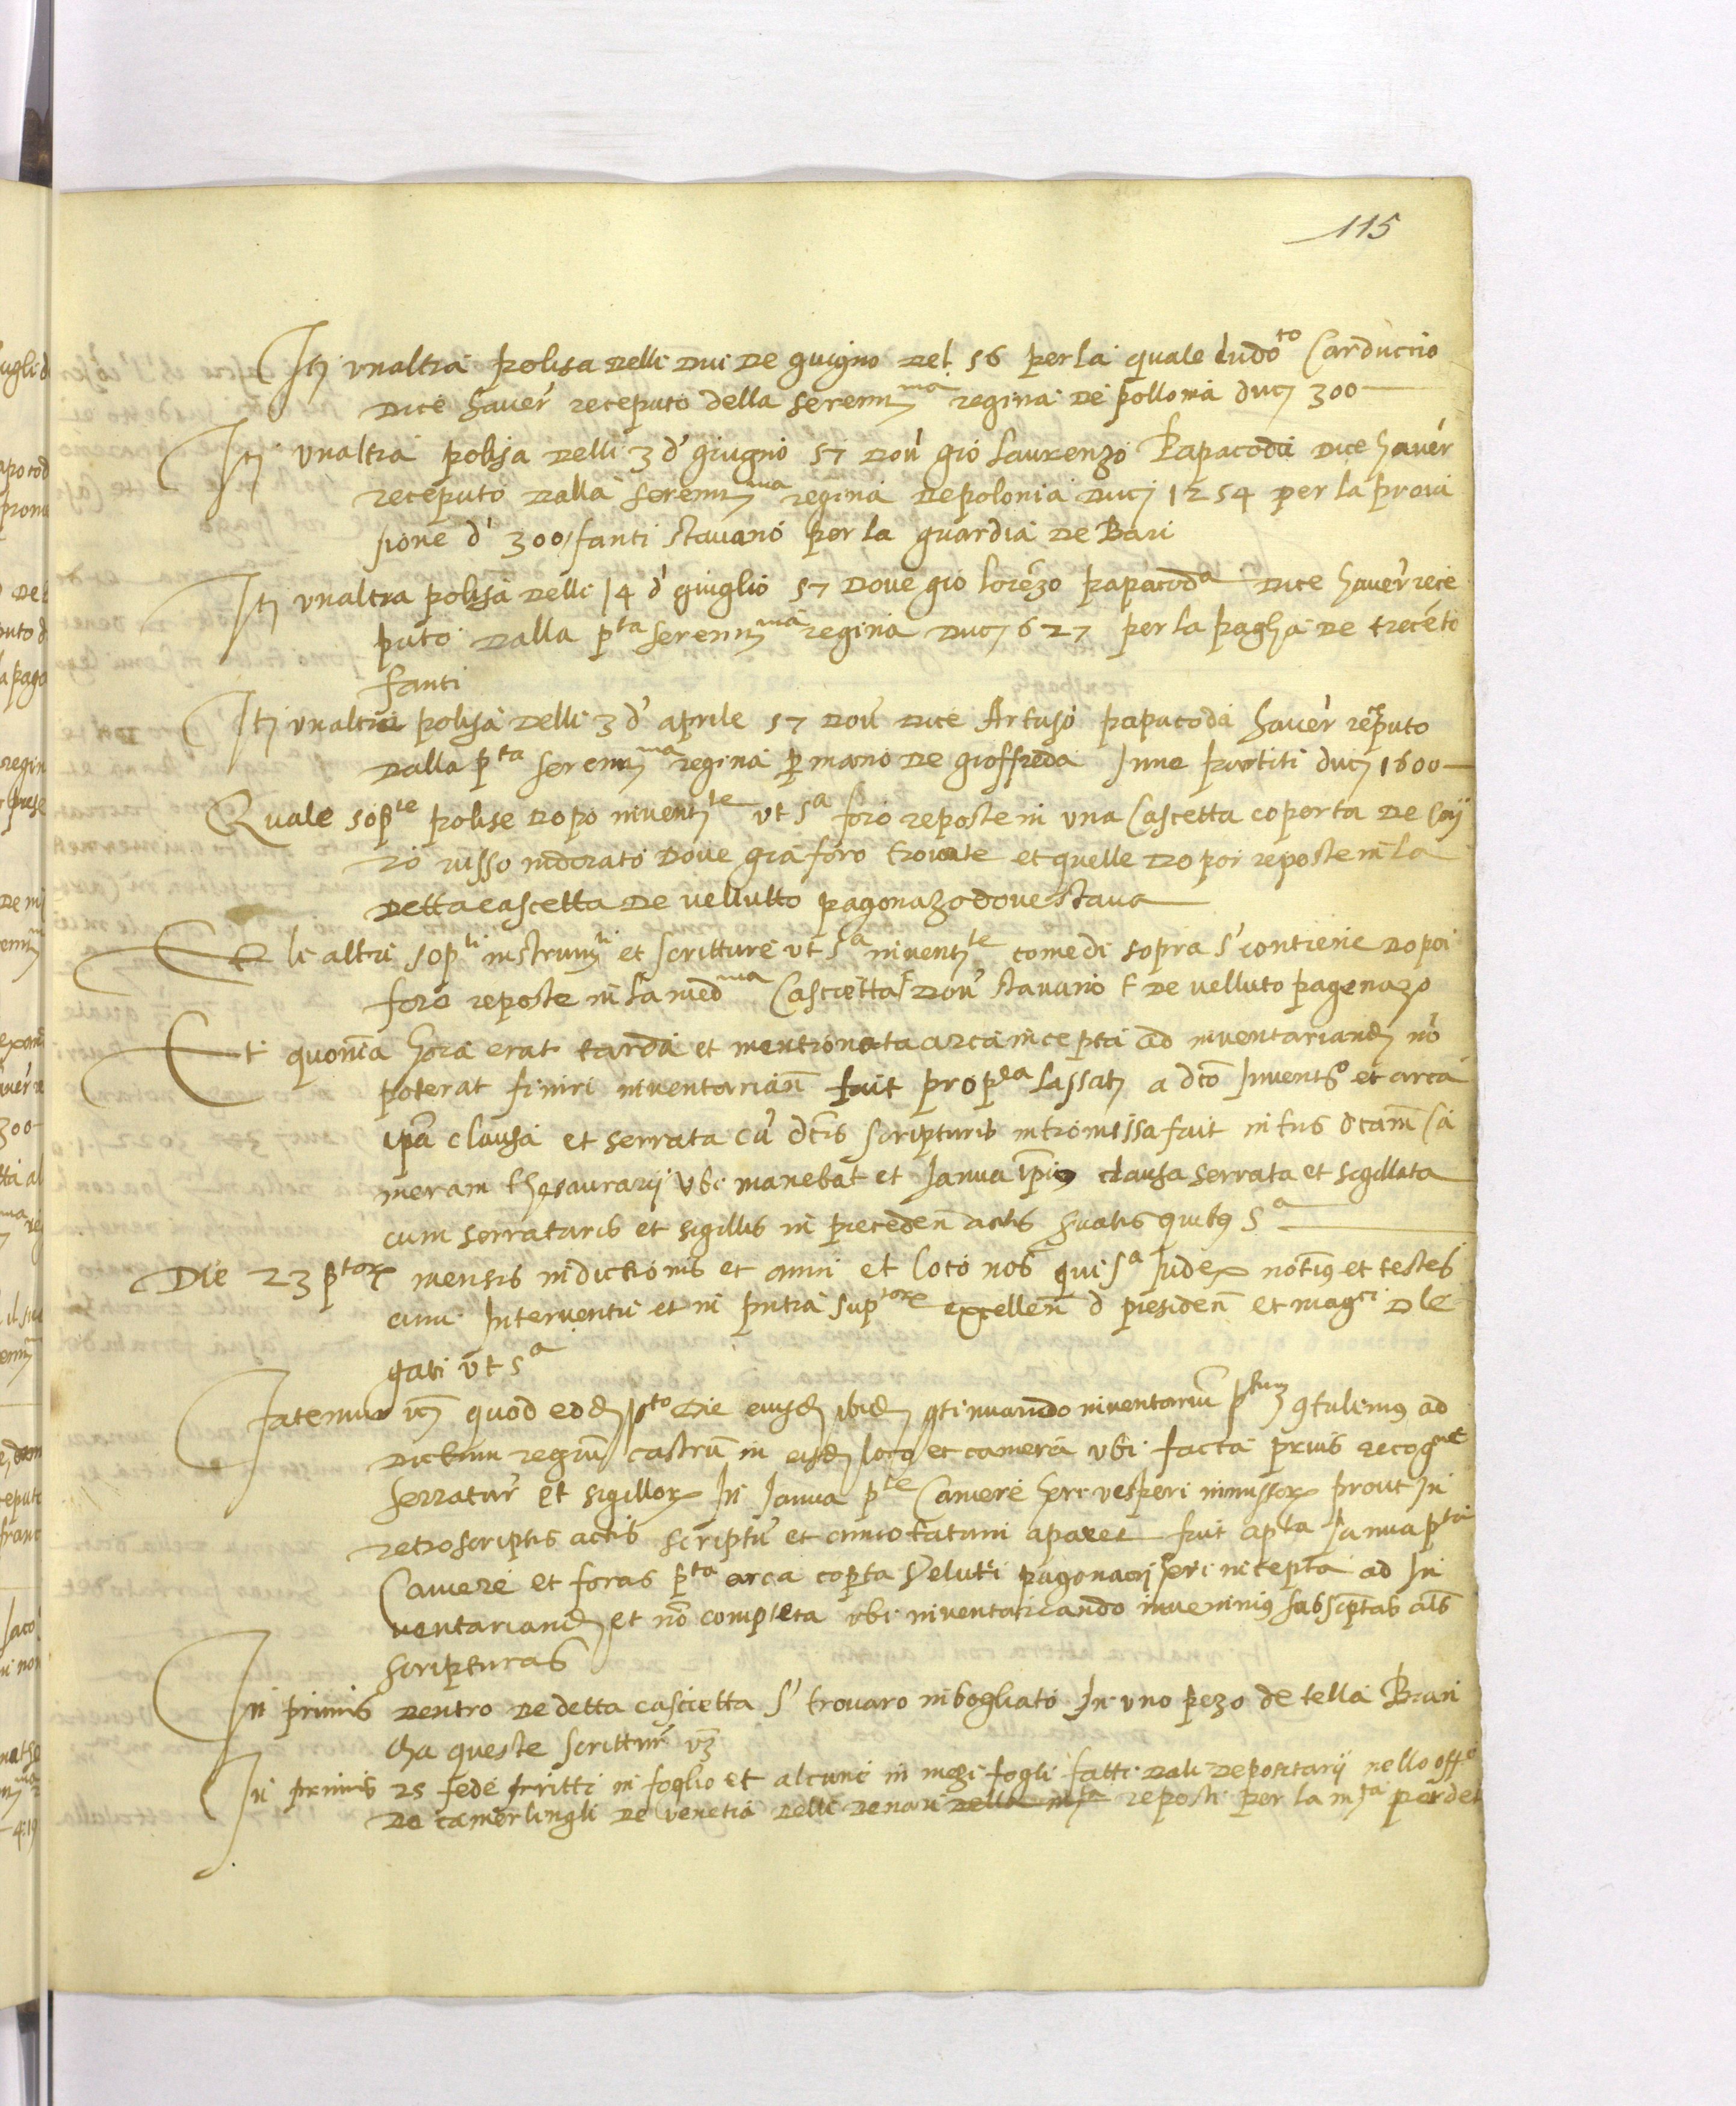 115
It(em) unaltra polisa delli dui de guigno del 56 per la quale ludo^to Carduccio
dice haver receputo della seren^ma regina de pollonia duc 300
Itj unaltra polisa delli 3 d' giugno 57 dou' gio laurenzo Papacoda dice haver
receputo dalla seren^ma regina de polonia ducj 1254 per la proui
sione d' 300 fanti stavano per la guardia de Bari
Itj unaltra polisa delli 14 d' giuglio 57 dove gio lorézo papacoda dice haver rece
puto dalla p^ta seren^ma regina ducj 627 per la pagha de trecéto
fanti
Itj unaltra polisa delli 3 d' aprile 57 dou' dice Artuso papacoda haver reputo
dalla p^ta seren^ma regina p mano de gioffreda in ne partiti ducj 1600
Quale sop^te polise dopo invent^te ut s^a foro reposte in una cascetta coperta de coy
ro russo indorato dove già foro trovate et quelle dopoi reposte in la
detta cascetta de vellutto pagonazo dove stava
Et li altri sop^ti instrum^ti et scritture ut s^a invent^te come di sopra s' contiene dopoi
foro reposte in la med^ma Cascietta dou' stavano de velluto pagonazo
Et quonia hora erat tarda et mentionata arca incepta ad inventariand no
poterat finiri inventarian fuit prop^ea lassat a dco Invent^o et arca
ipa clausa et serrata cu dcis scripturis intromissa fuit intus dcam Ca
meram thesaurarij ubi manebat et Janua ipius clausa serrata et sigillata
cum serraturis et sigillis in preceden actis quibus s^a
Die 23 p^tor mensis indictionis et anni et loco nos qui s^a Judex notius et testes
cum Interventu et in pntia sup^tor excellen d presiden et mag^ci dle
gati ut s^a
Fatemur quod eod p^to die eiusd ibid continuando inventariu p^tum contulimus ad
dictum regiu castru in eisd loco et camera ubi facta prius recog^ne
serratur et sigillor In Janua p^te Camere heri vesperi immissor prout In
retroscriptis actis scriptu et annotatum aparet fuit apta Janua p^ta
Camere et foras p^ta arca copta Veluti pagonacij heri incepta ad In
ventariand et no completa ubi inventariando invenimus subscptas als
scripturas
In primis dentro de detta cascietta s' trovaro inbogliato In uno pezo de tella Bian
cha queste scrittur' vz
In primis 25 fede scritti in foglio et alcune in mezi fogli fatti dali depositarij nello off^o
de camerlinghi de venetia delli denari della m^ta reposti per la m^ta per det